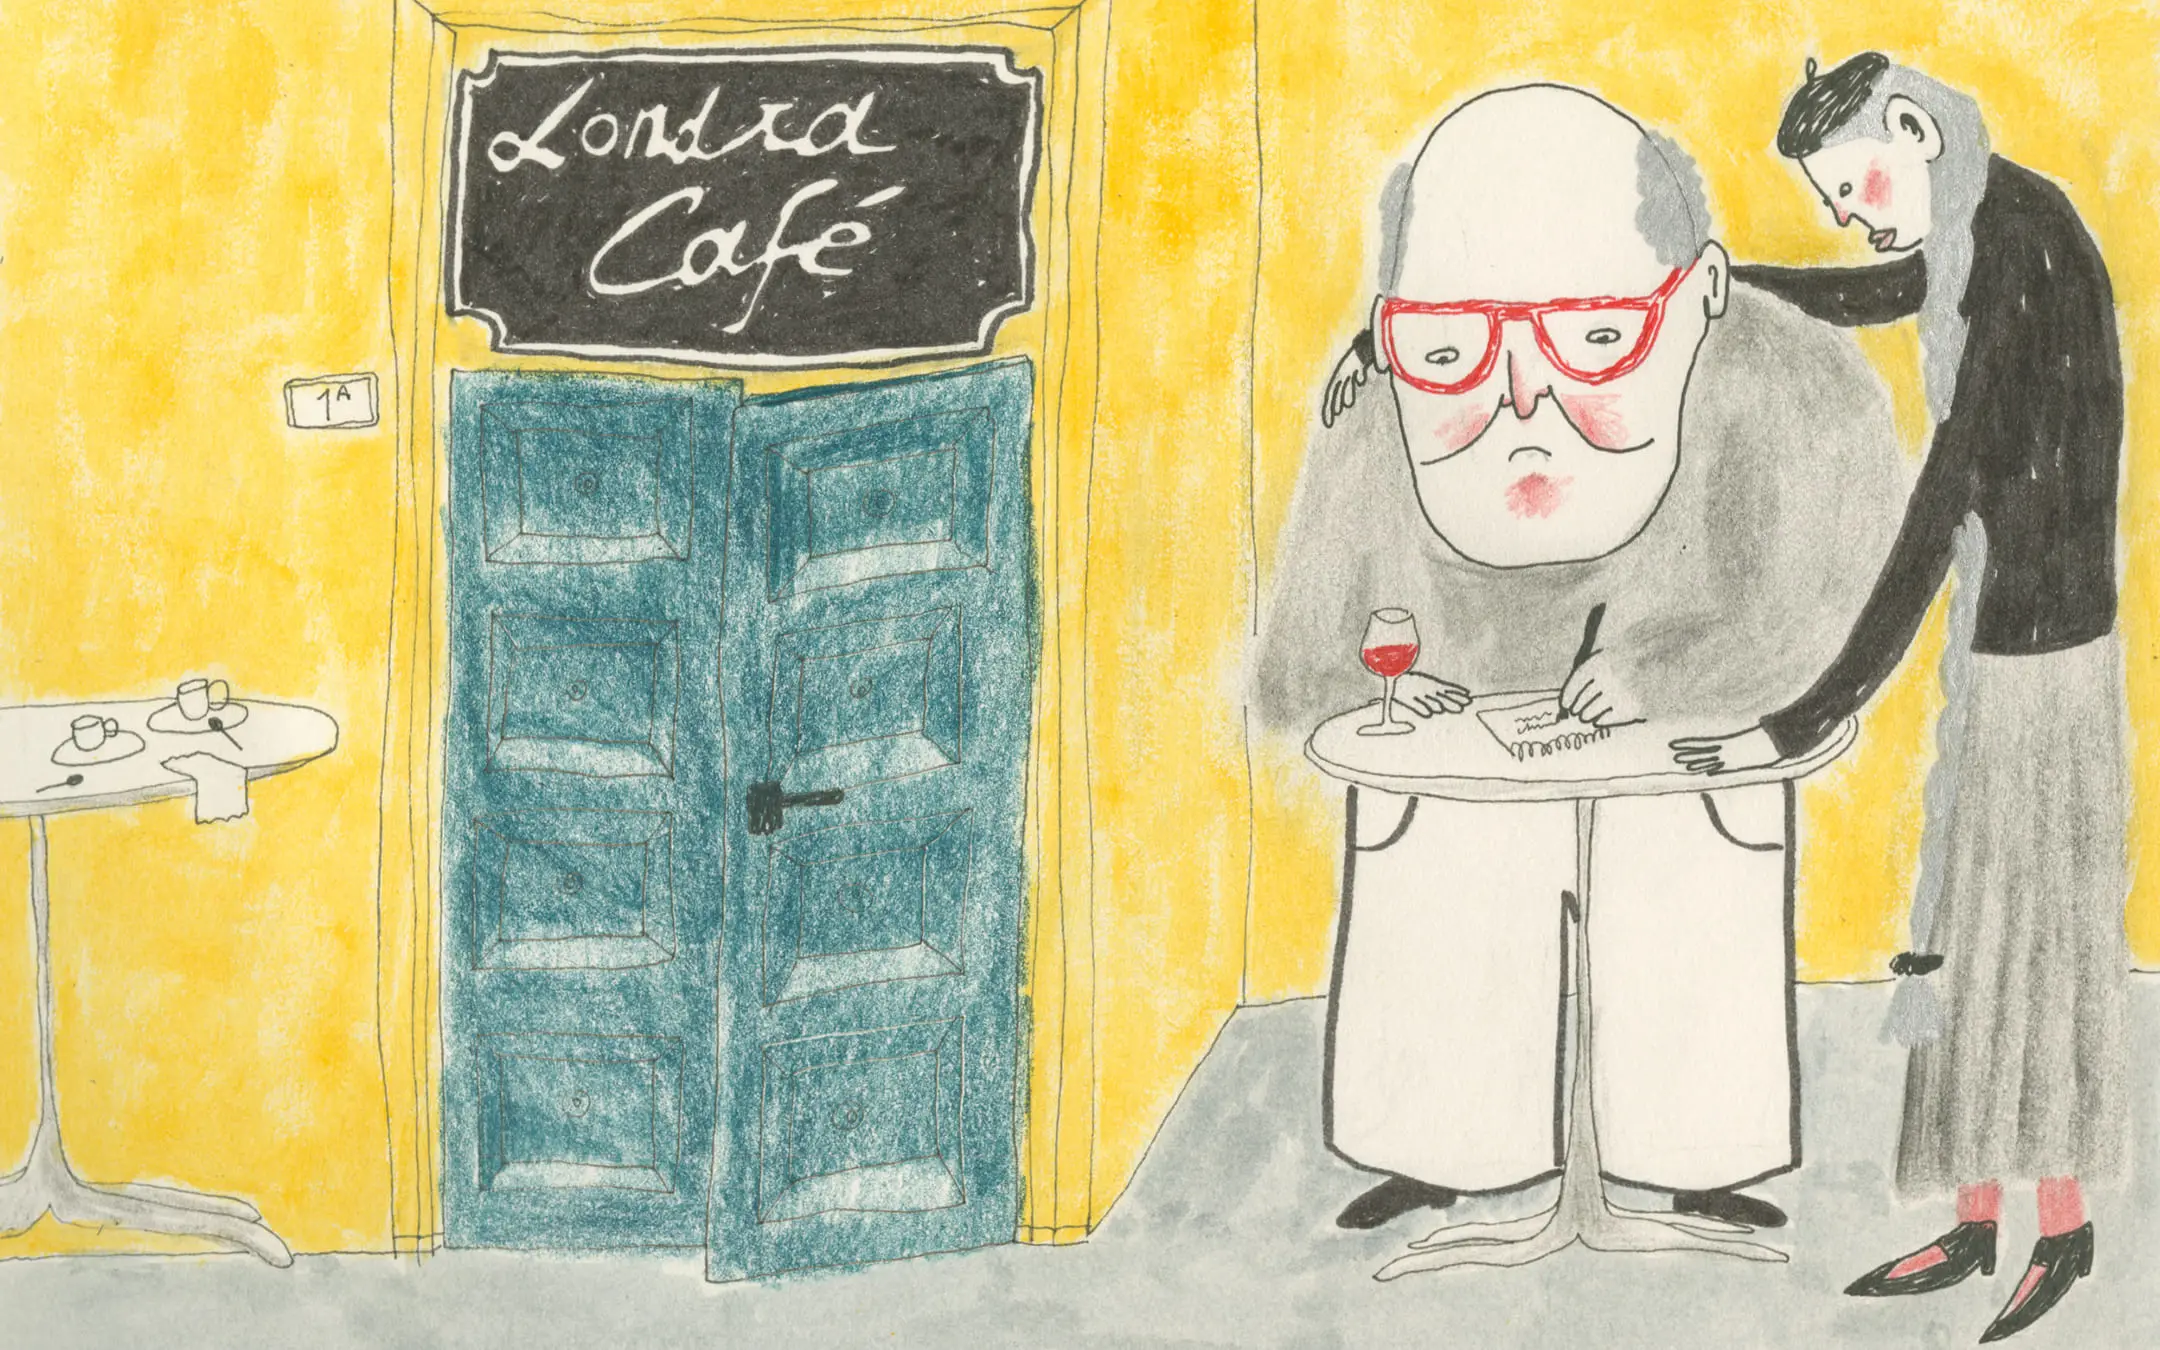 Londra
Café
1A